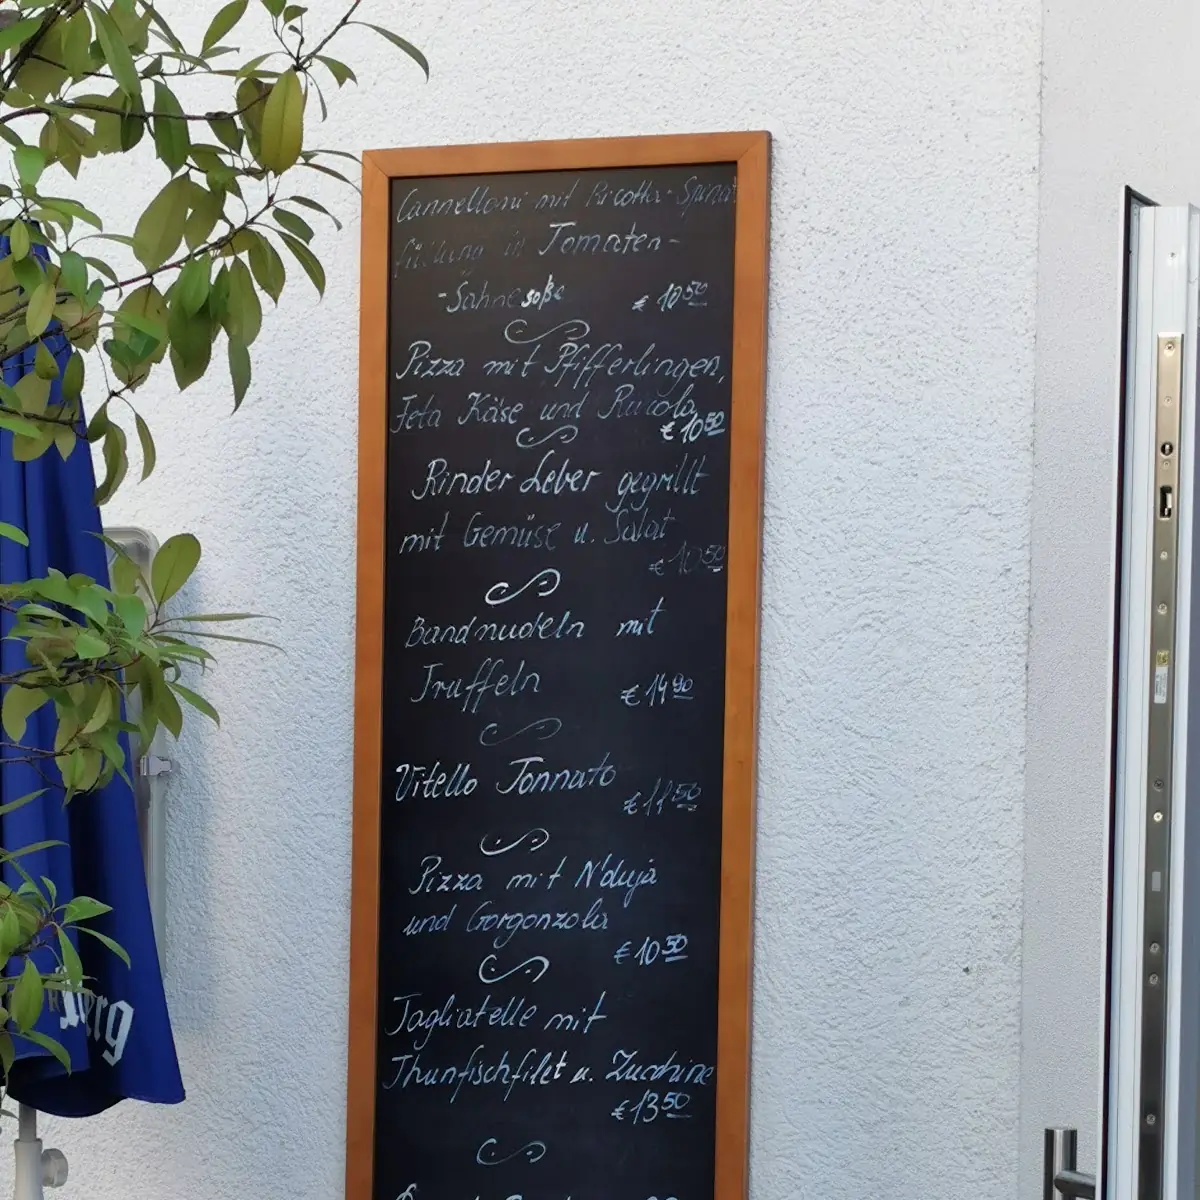 Cannelloni mit Ricotta-Spinat
füllung in Tomaten-
-Sahnesoße € 10 50
Pizza mit Pfifferlingen,
Feta Käse und Rucola
€ 10 50
Rinder Leber gegrillt
mit Gemüse u. Salat
€ 10 50
Bandnudeln mit
Truffeln € 14 90
Vitello Tonnato
€ 11 50
Pizza mit N'duja
und Gorgonzola
€ 10 50
Tagliatelle mit
Thunfischfilet u. Zucchine
€ 13 50